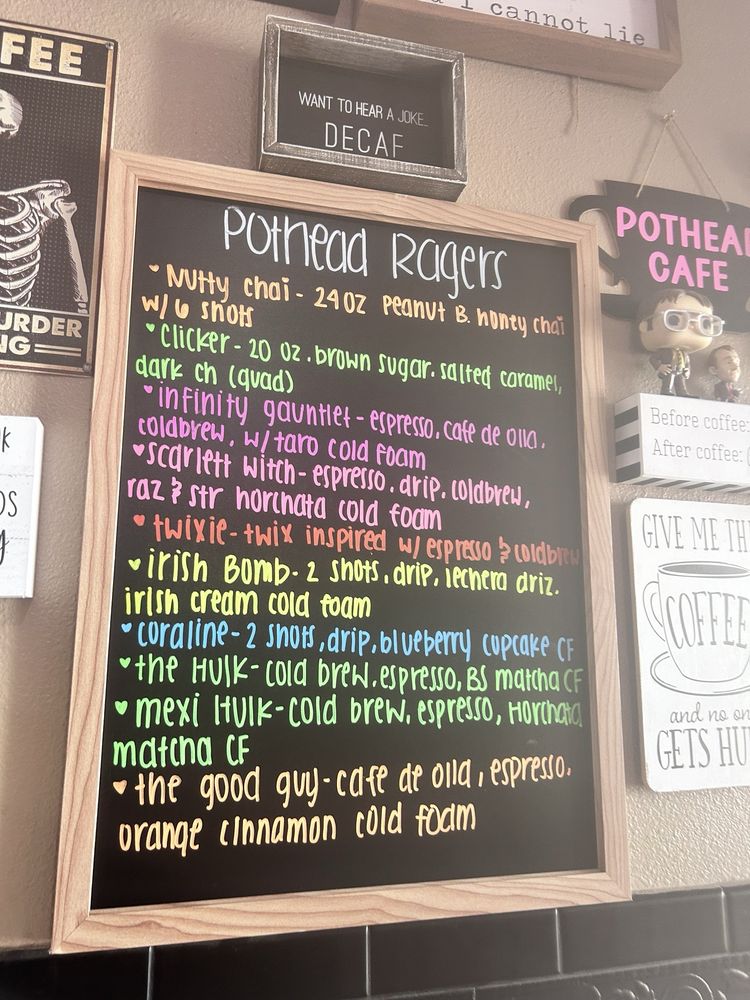 I cannot lie
FFEE
WANT TO HEAR A JOKE...
DECAF
POTHEAD
CAFE
Pothead Ragers
Nutty chai - 24oz Peanut B. honey chai
w/ 6 shots
Clicker - 20 oz. brown sugar. salted caramel,
dark ch (quad)
infinity gauntlet - espresso, cafe de olla,
coldbrew, w/ taro cold foam
scarlett witch - espresso, drip, coldbrew,
raz & str horchata cold foam
twixie - twix inspired w/ espresso & coldbrew
irish Bomb - 2 shots, drip, lechera driz.
irish cream cold foam
coraline - 2 shots, drip, blueberry cupcake CF
the Hulk - cold brew, espresso, BS matcha CF
mexi Hulk - cold brew, espresso, Horchata
matcha CF
the good guy - cafe de olla, espresso.
orange cinnamon cold foam
URDER
NG
Before coffee:
After coffee:
GIVE ME TH
COFFEE
and no on
GETS HU